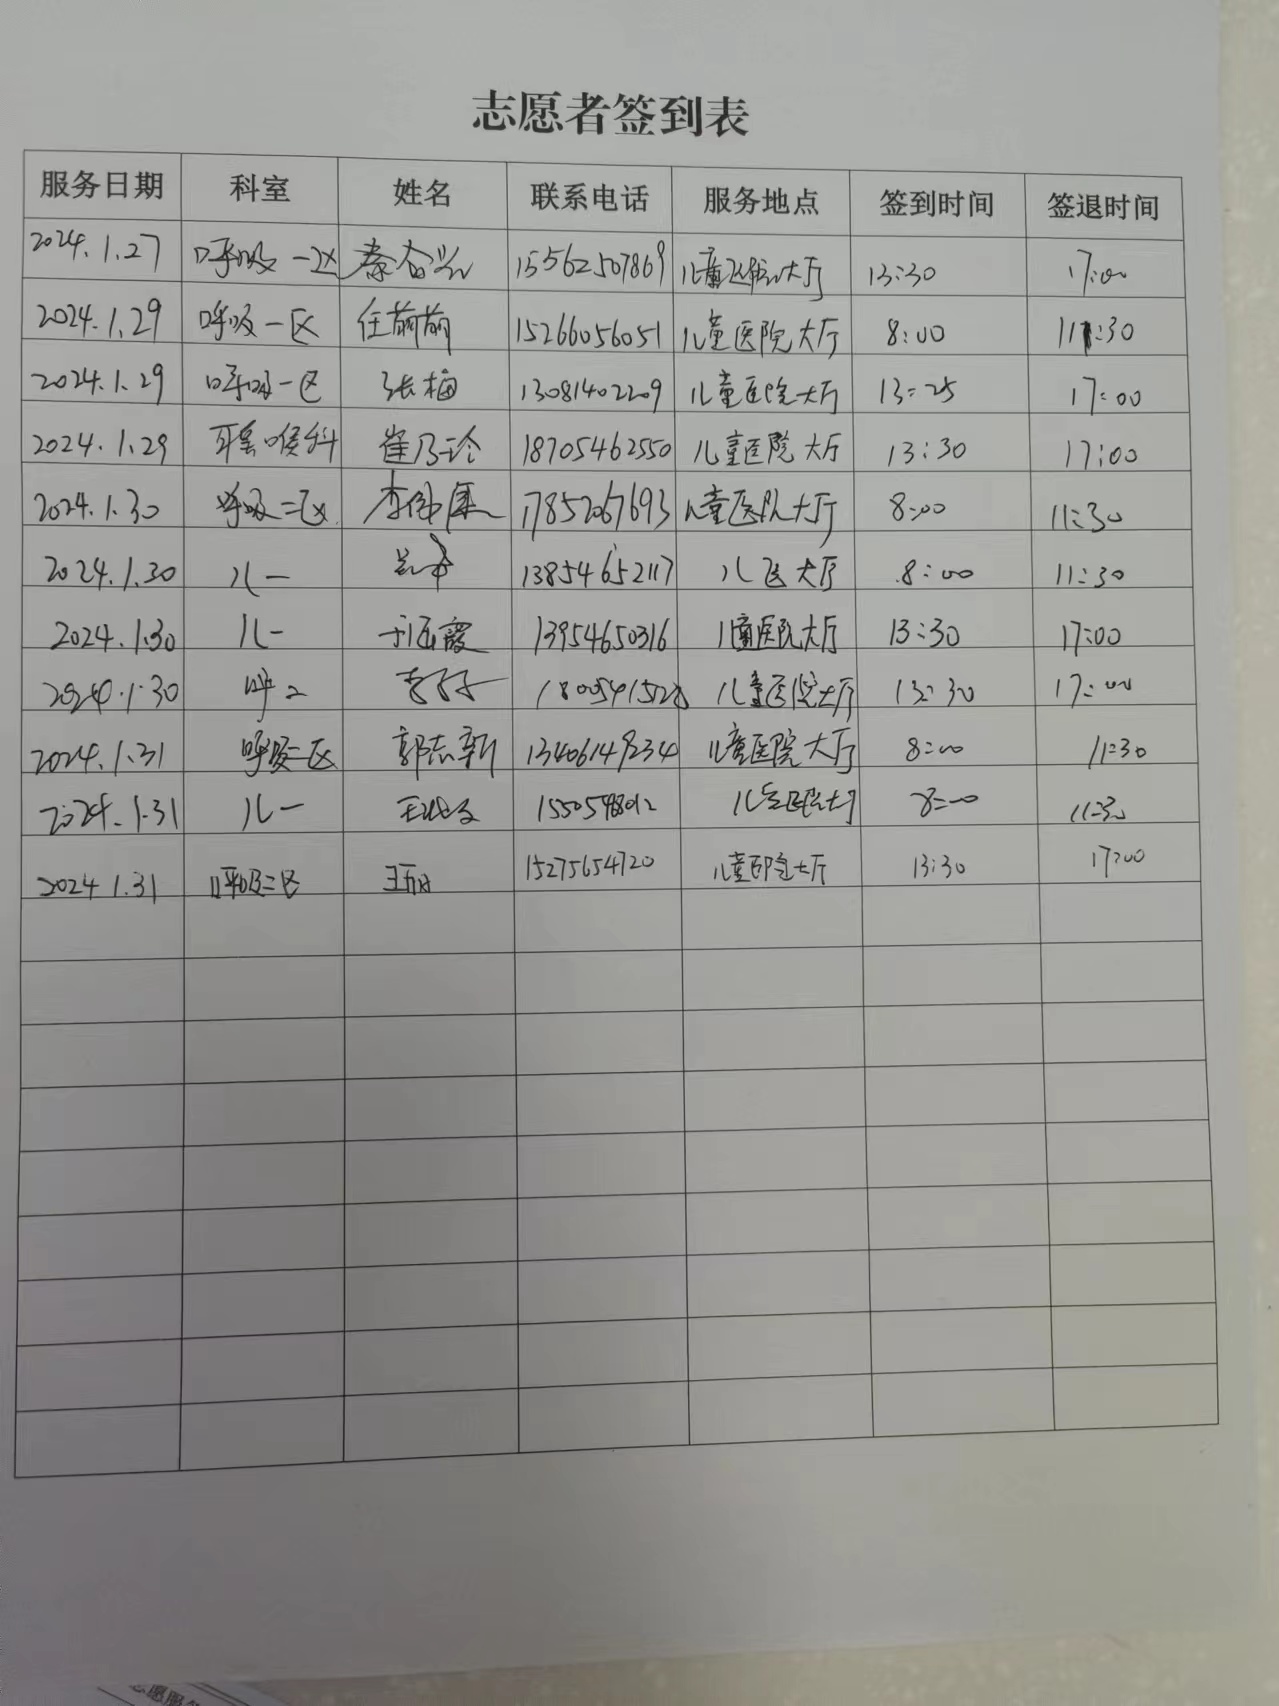 志愿者签到表
服务日期 科室 姓名 联系电话 服务地点 签到时间 签退时间
2024.1.27 呼吸一区 秦奋兴 15562507869 儿童医院大厅 13:30 17:00
2024.1.29 呼吸一区 任萌萌 15266056051 儿童医院大厅 8:00 11:30
2024.1.29 呼吸一区 张梅 13081402209 儿童医院大厅 13:25 17:00
2024.1.29 耳鼻喉科 崔乃玲 18705462550 儿童医院大厅 13:30 17:00
2024.1.30 呼吸二区 李伟康 17852067693 儿童医院大厅 8:00 11:30
2024.1.30 儿一 13854652117 儿医大厅 8:00 11:30
2024.1.30 儿一 13954650316 儿童医院大厅 13:30 17:00
2024.1.30 呼二 儿童医院大厅 13:30 17:00
2024.1.31 呼吸二区 郭志新 13406149234 儿童医院大厅 8:00 11:30
2024.1.31 儿一 儿童医院大厅 8:00 11:30
2024 1.31 呼吸二区 15275654720 儿童医院大厅 13:30 17:00